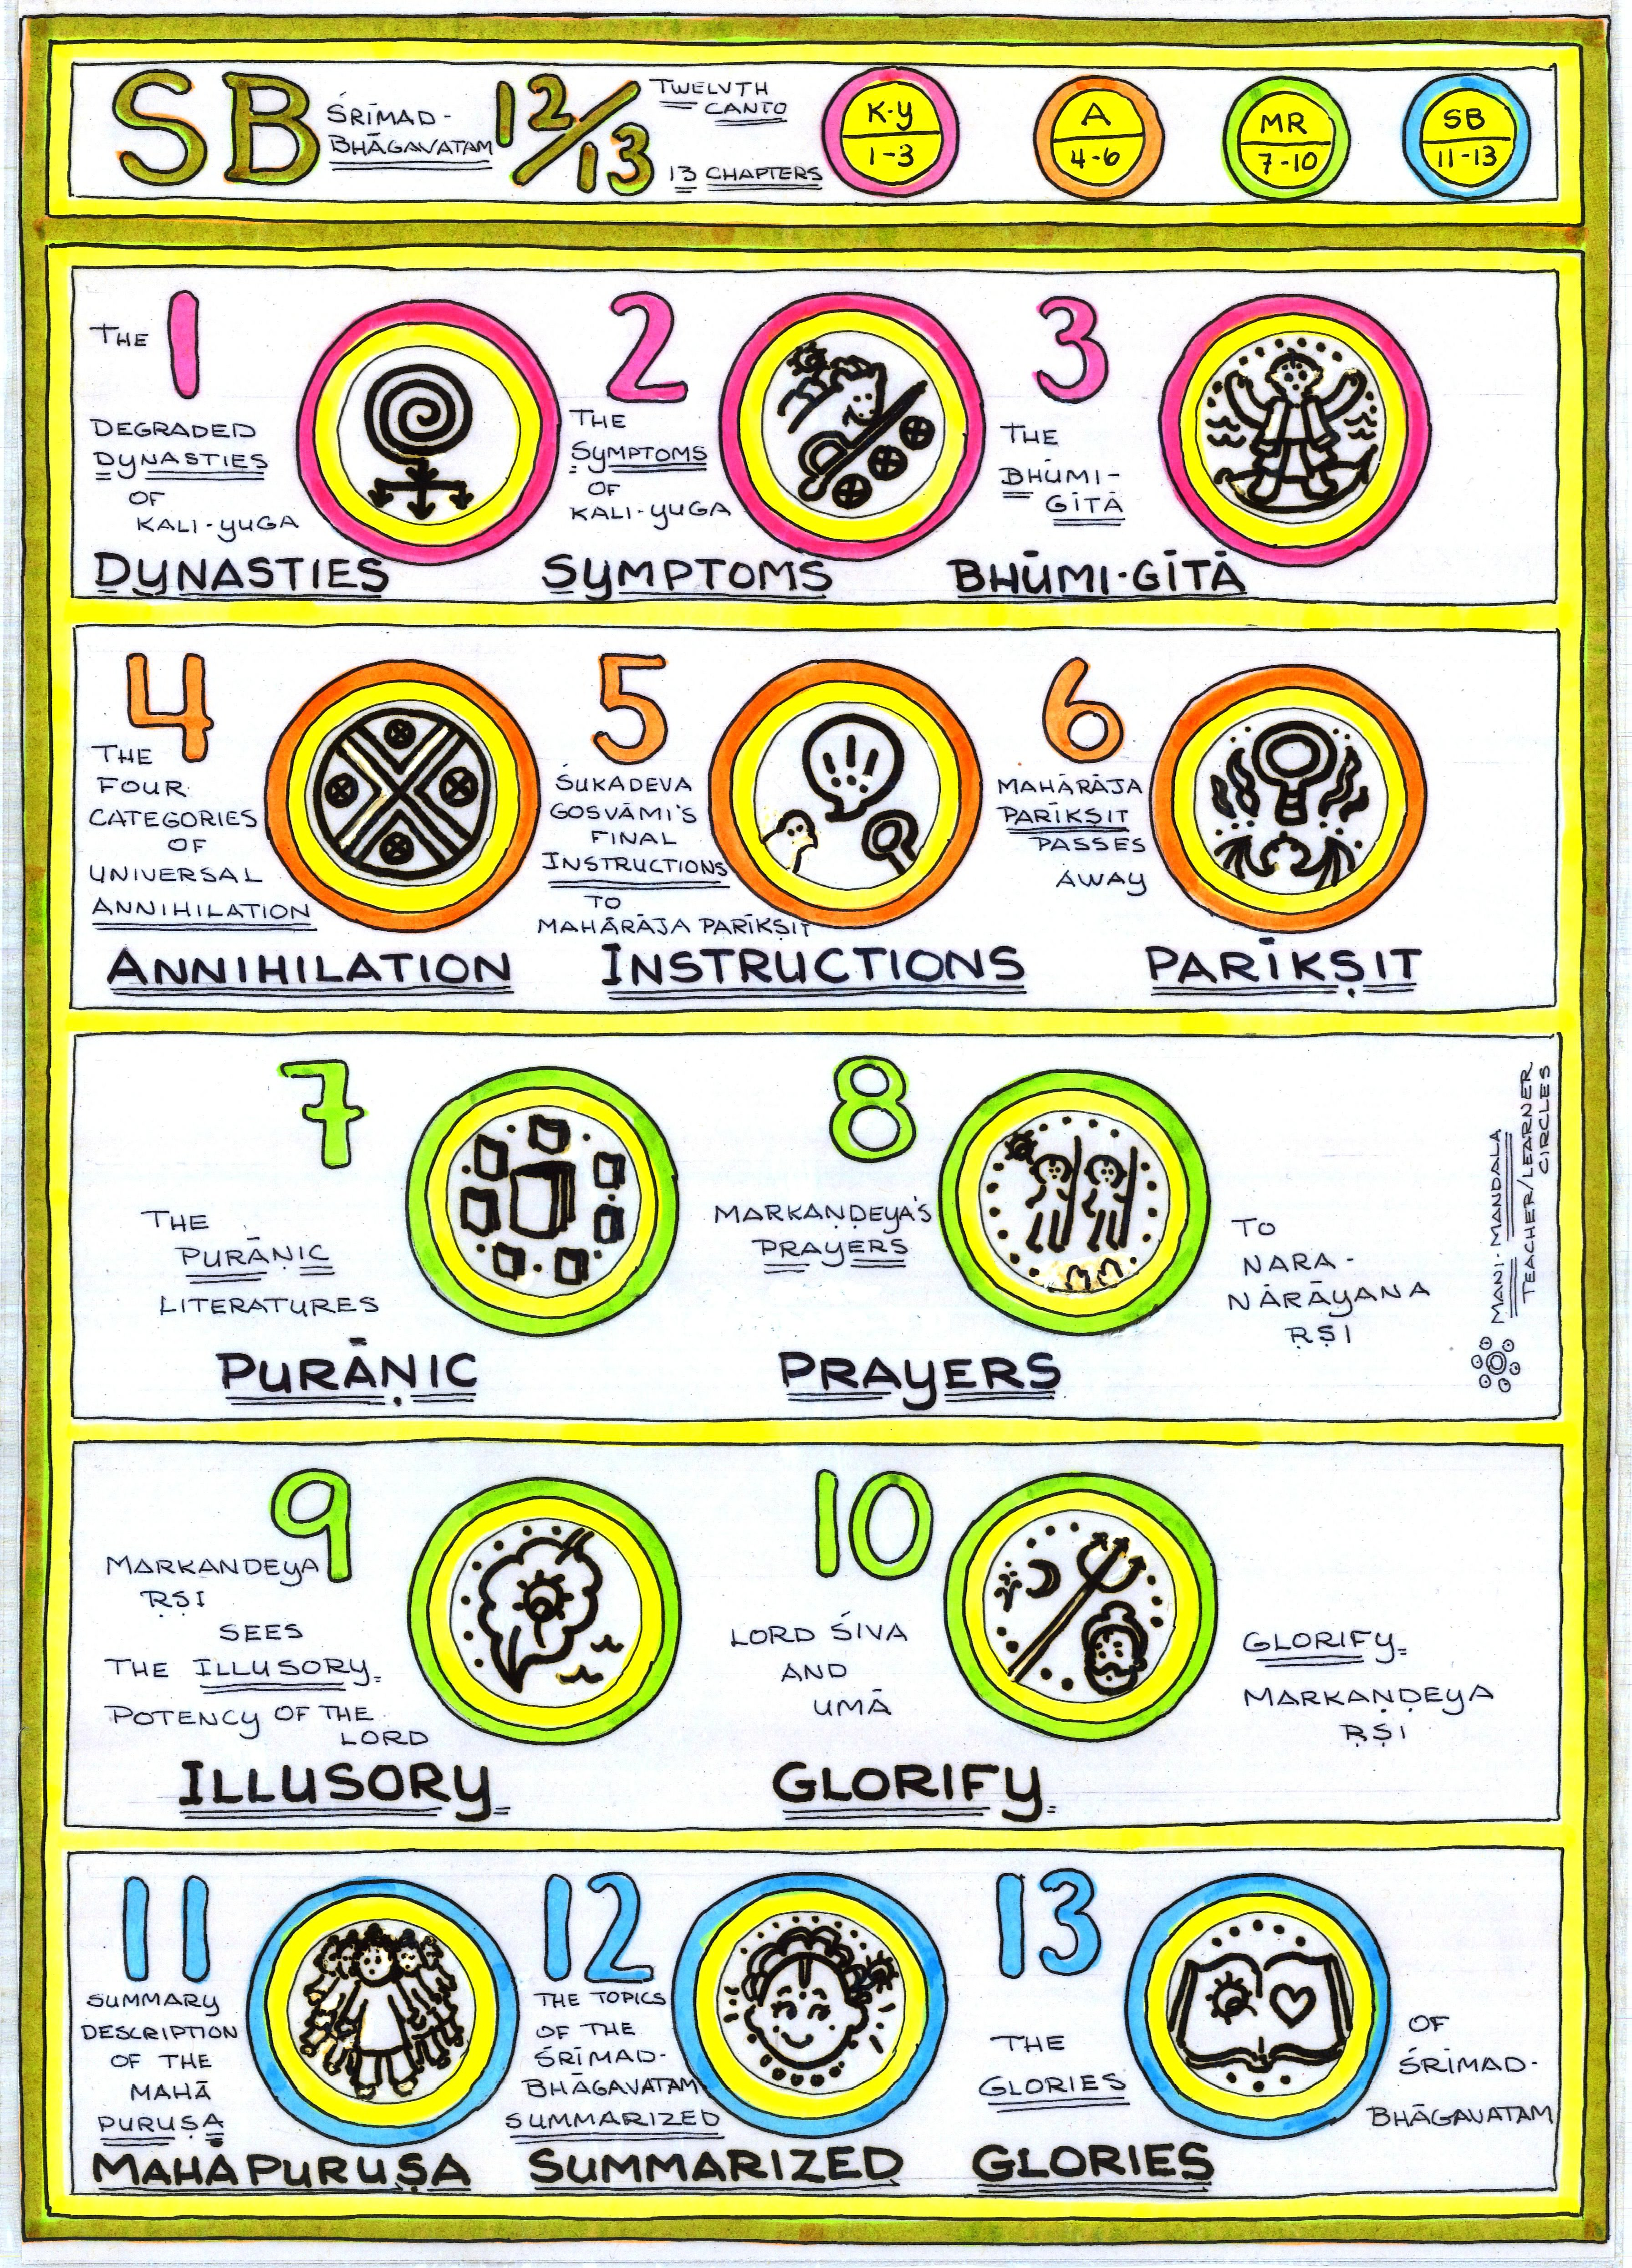 SB
ŚRĪMAD-
BHĀGAVATAM
12/13
TWELVTH
CANTO
13 CHAPTERS
K-Y
1-3
A
4-6
MR
7-10
SB
11-13
THE
1
DEGRADED
DYNASTIES
OF
KALI-YUGA
DYNASTIES
2
THE
SYMPTOMS
OF
KALI-YUGA
SYMPTOMS
3
THE
BHŪMI-
GĪTĀ
BHŪMI-GĪTĀ
4
THE
FOUR
CATEGORIES
OF
UNIVERSAL
ANNIHILATION
ANNIHILATION
5
ŚUKADEVA
GOSVĀMI'S
FINAL
INSTRUCTIONS
TO
MAHĀRĀJA PARĪKṢIT
INSTRUCTIONS
6
MAHĀRĀJA
PARĪKṢIT
PASSES
AWAY
PARĪKṢIT
7
THE
PURĀṆIC
LITERATURES
PURĀṆIC
8
MARKAṆḌEYA'S
PRAYERS
TO
NARA-
NĀRĀYANA
ṚṢI
PRAYERS
MANI-MANDALA
TEACHER/LEARNER
CIRCLES
9
MARKANDEYA
ṚṢI
SEES
THE ILLUSORY
POTENCY OF THE
LORD
ILLUSORY
10
LORD ŚIVA
AND
UMĀ
GLORIFY
MARKAṆḌEYA
ṚṢI
GLORIFY
11
SUMMARY
DESCRIPTION
OF THE
MAHĀ
PURUṢA
MAHĀPURUṢA
12
THE TOPICS
OF THE
ŚRĪMAD-
BHĀGAVATAM
SUMMARIZED
SUMMARIZED
13
THE
GLORIES
OF
ŚRĪMAD-
BHĀGAVATAM
GLORIES